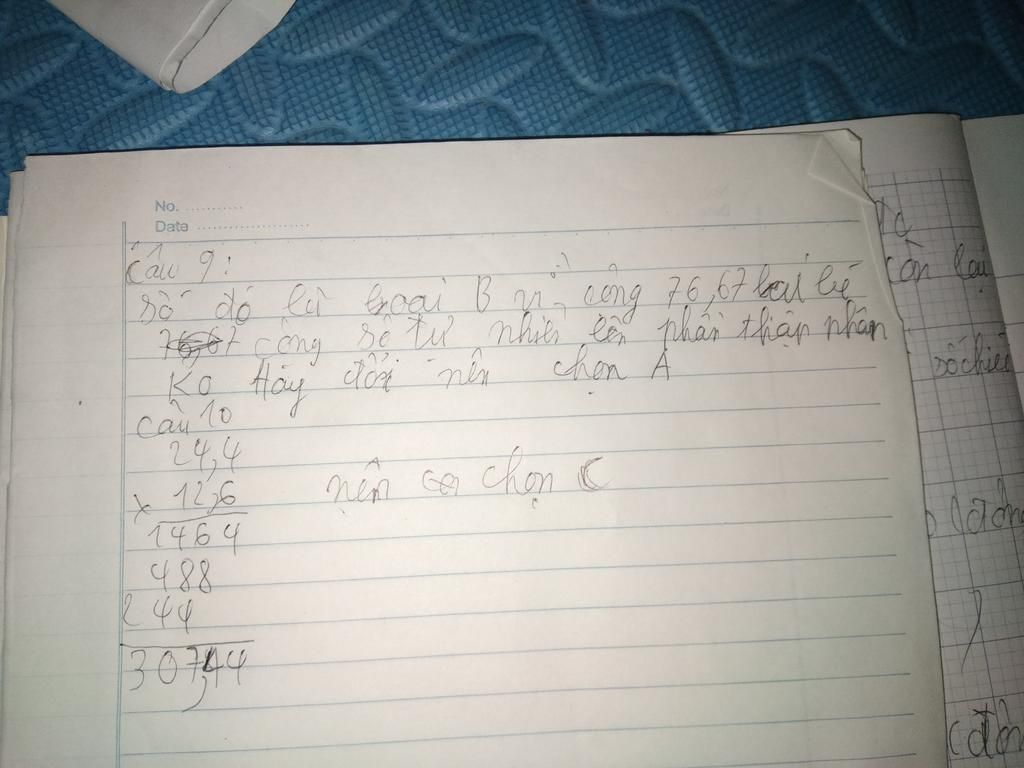 No. ............
Date ......................
Câu 9:
số đó là loại B vì cộng 76,67
cộng số tự nhiên lên phần thập phân
Ko thay đổi nên chọn A
Câu 10
24,4
x 12,6
nên chọn C
1464
488
244
307,44
còn lại
số chiế